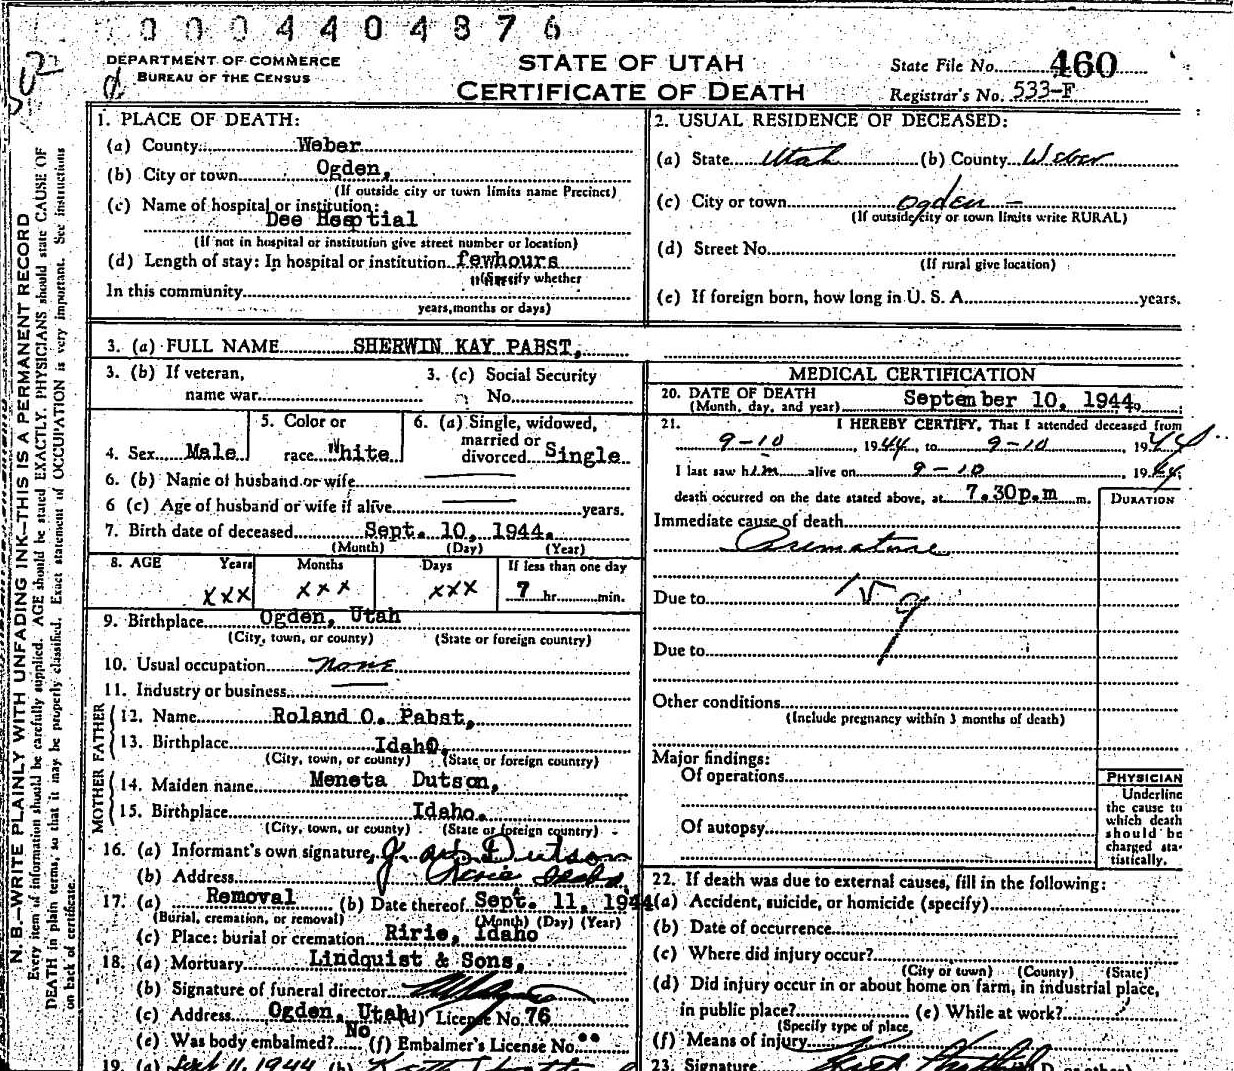 0004404876
DEPARTMENT OF COMMERCE
BUREAU OF THE CENSUS
STATE OF UTAH
CERTIFICATE OF DEATH
State File No. 460
Registrar's No. 533-F
N. B.—WRITE PLAINLY WITH UNFADING INK—THIS IS A PERMANENT RECORD
Every item of information should be carefully supplied. AGE should be stated EXACTLY. PHYSICIANS should state CAUSE OF
DEATH in plain terms, so that it may be properly classified. Exact statement of OCCUPATION is very important. See instructions
on back of certificate.
1. PLACE OF DEATH:
(a) County Weber
(b) City or town Ogden,
(If outside city or town limits name Precinct)
(c) Name of hospital or institution:
Dee Hosptial
(If not in hospital or institution give street number or location)
(d) Length of stay: In hospital or institution fewhours
(Specify whether
In this community
years, months or days)
2. USUAL RESIDENCE OF DECEASED:
(a) State Utah (b) County Weber
(c) City or town Ogden -
(If outside city or town limits write RURAL)
(d) Street No.
(If rural give location)
(e) If foreign born, how long in U. S. A. years.
3. (a) FULL NAME SHERWIN KAY PABST,
3. (b) If veteran, name war
3. (c) Social Security No.
4. Sex Male
5. Color or race White
6. (a) Single, widowed, married or divorced Single
6. (b) Name of husband or wife
6 (c) Age of husband or wife if alive years.
7. Birth date of deceased Sept. 10, 1944.
(Month) (Day) (Year)
8. AGE Years Months Days If less than one day
xxx xxx xxx 7 hr. min.
9. Birthplace Ogden, Utah
(City, town, or county) (State or foreign country)
10. Usual occupation none
11. Industry or business
FATHER
12. Name Roland O. Pabst,
13. Birthplace Idaho.
(City, town, or county) (State or foreign country)
MOTHER
14. Maiden name Meneta Dutson,
15. Birthplace Idaho.
(City, town, or county) (State or foreign country)
16. (a) Informant's own signature Dutson
(b) Address Ririe Idaho
17. (a) Removal (b) Date thereof Sept. 11, 1944
(Burial, cremation, or removal) (Month) (Day) (Year)
(c) Place: burial or cremation Ririe, Idaho
18. (a) Mortuary Lindquist & Sons,
(b) Signature of funeral director
(c) Address Ogden, Utah (d) License No. 76
(e) Was body embalmed? No (f) Embalmer's License No. **
19. (a) Sept 11, 1944 (b)
MEDICAL CERTIFICATION
20. DATE OF DEATH
(Month, day, and year) September 10, 1944.
21. I HEREBY CERTIFY, That I attended deceased from
9-10, 1944, to 9-10, 1944
I last saw him alive on 9-10 1944;
death occurred on the date stated above, at 7.30p.m m.
DURATION
Immediate cause of death
Premature
Due to
Due to
Other conditions
(Include pregnancy within 3 months of death)
Major findings:
Of operations
Of autopsy
PHYSICIAN
Underline
the cause to
which death
should be
charged sta-
tistically.
22. If death was due to external causes, fill in the following:
(a) Accident, suicide, or homicide (specify)
(b) Date of occurrence
(c) Where did injury occur?
(City or town) (County) (State)
(d) Did injury occur in or about home on farm, in industrial place,
in public place? (e) While at work?
(Specify type of place,
(f) Means of injury
23. Signature